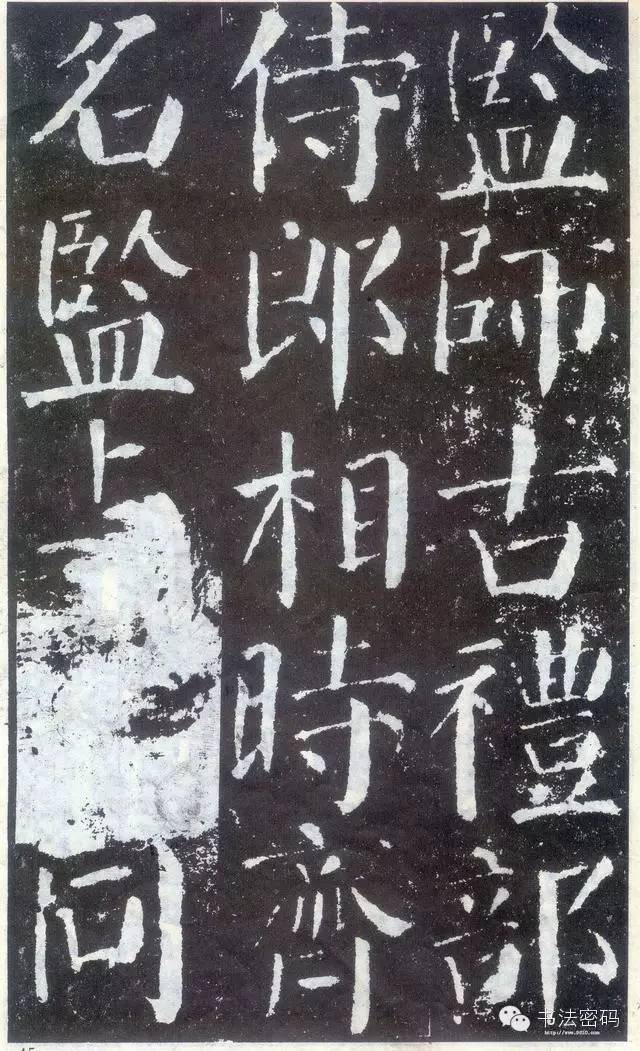 監師古禮部
侍郎相時齊
名監同
书法密码